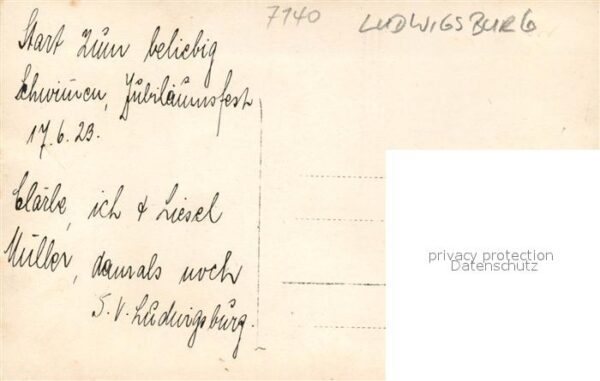 7140 LUDWIGSBURG
Start zum beliebig
Schwimmen, Jubiläumsfest
17.6.23.
Clärle, ich & Liesel
Müller, damals noch
S.V. Ludwigsburg.
privacy protection
Datenschutz